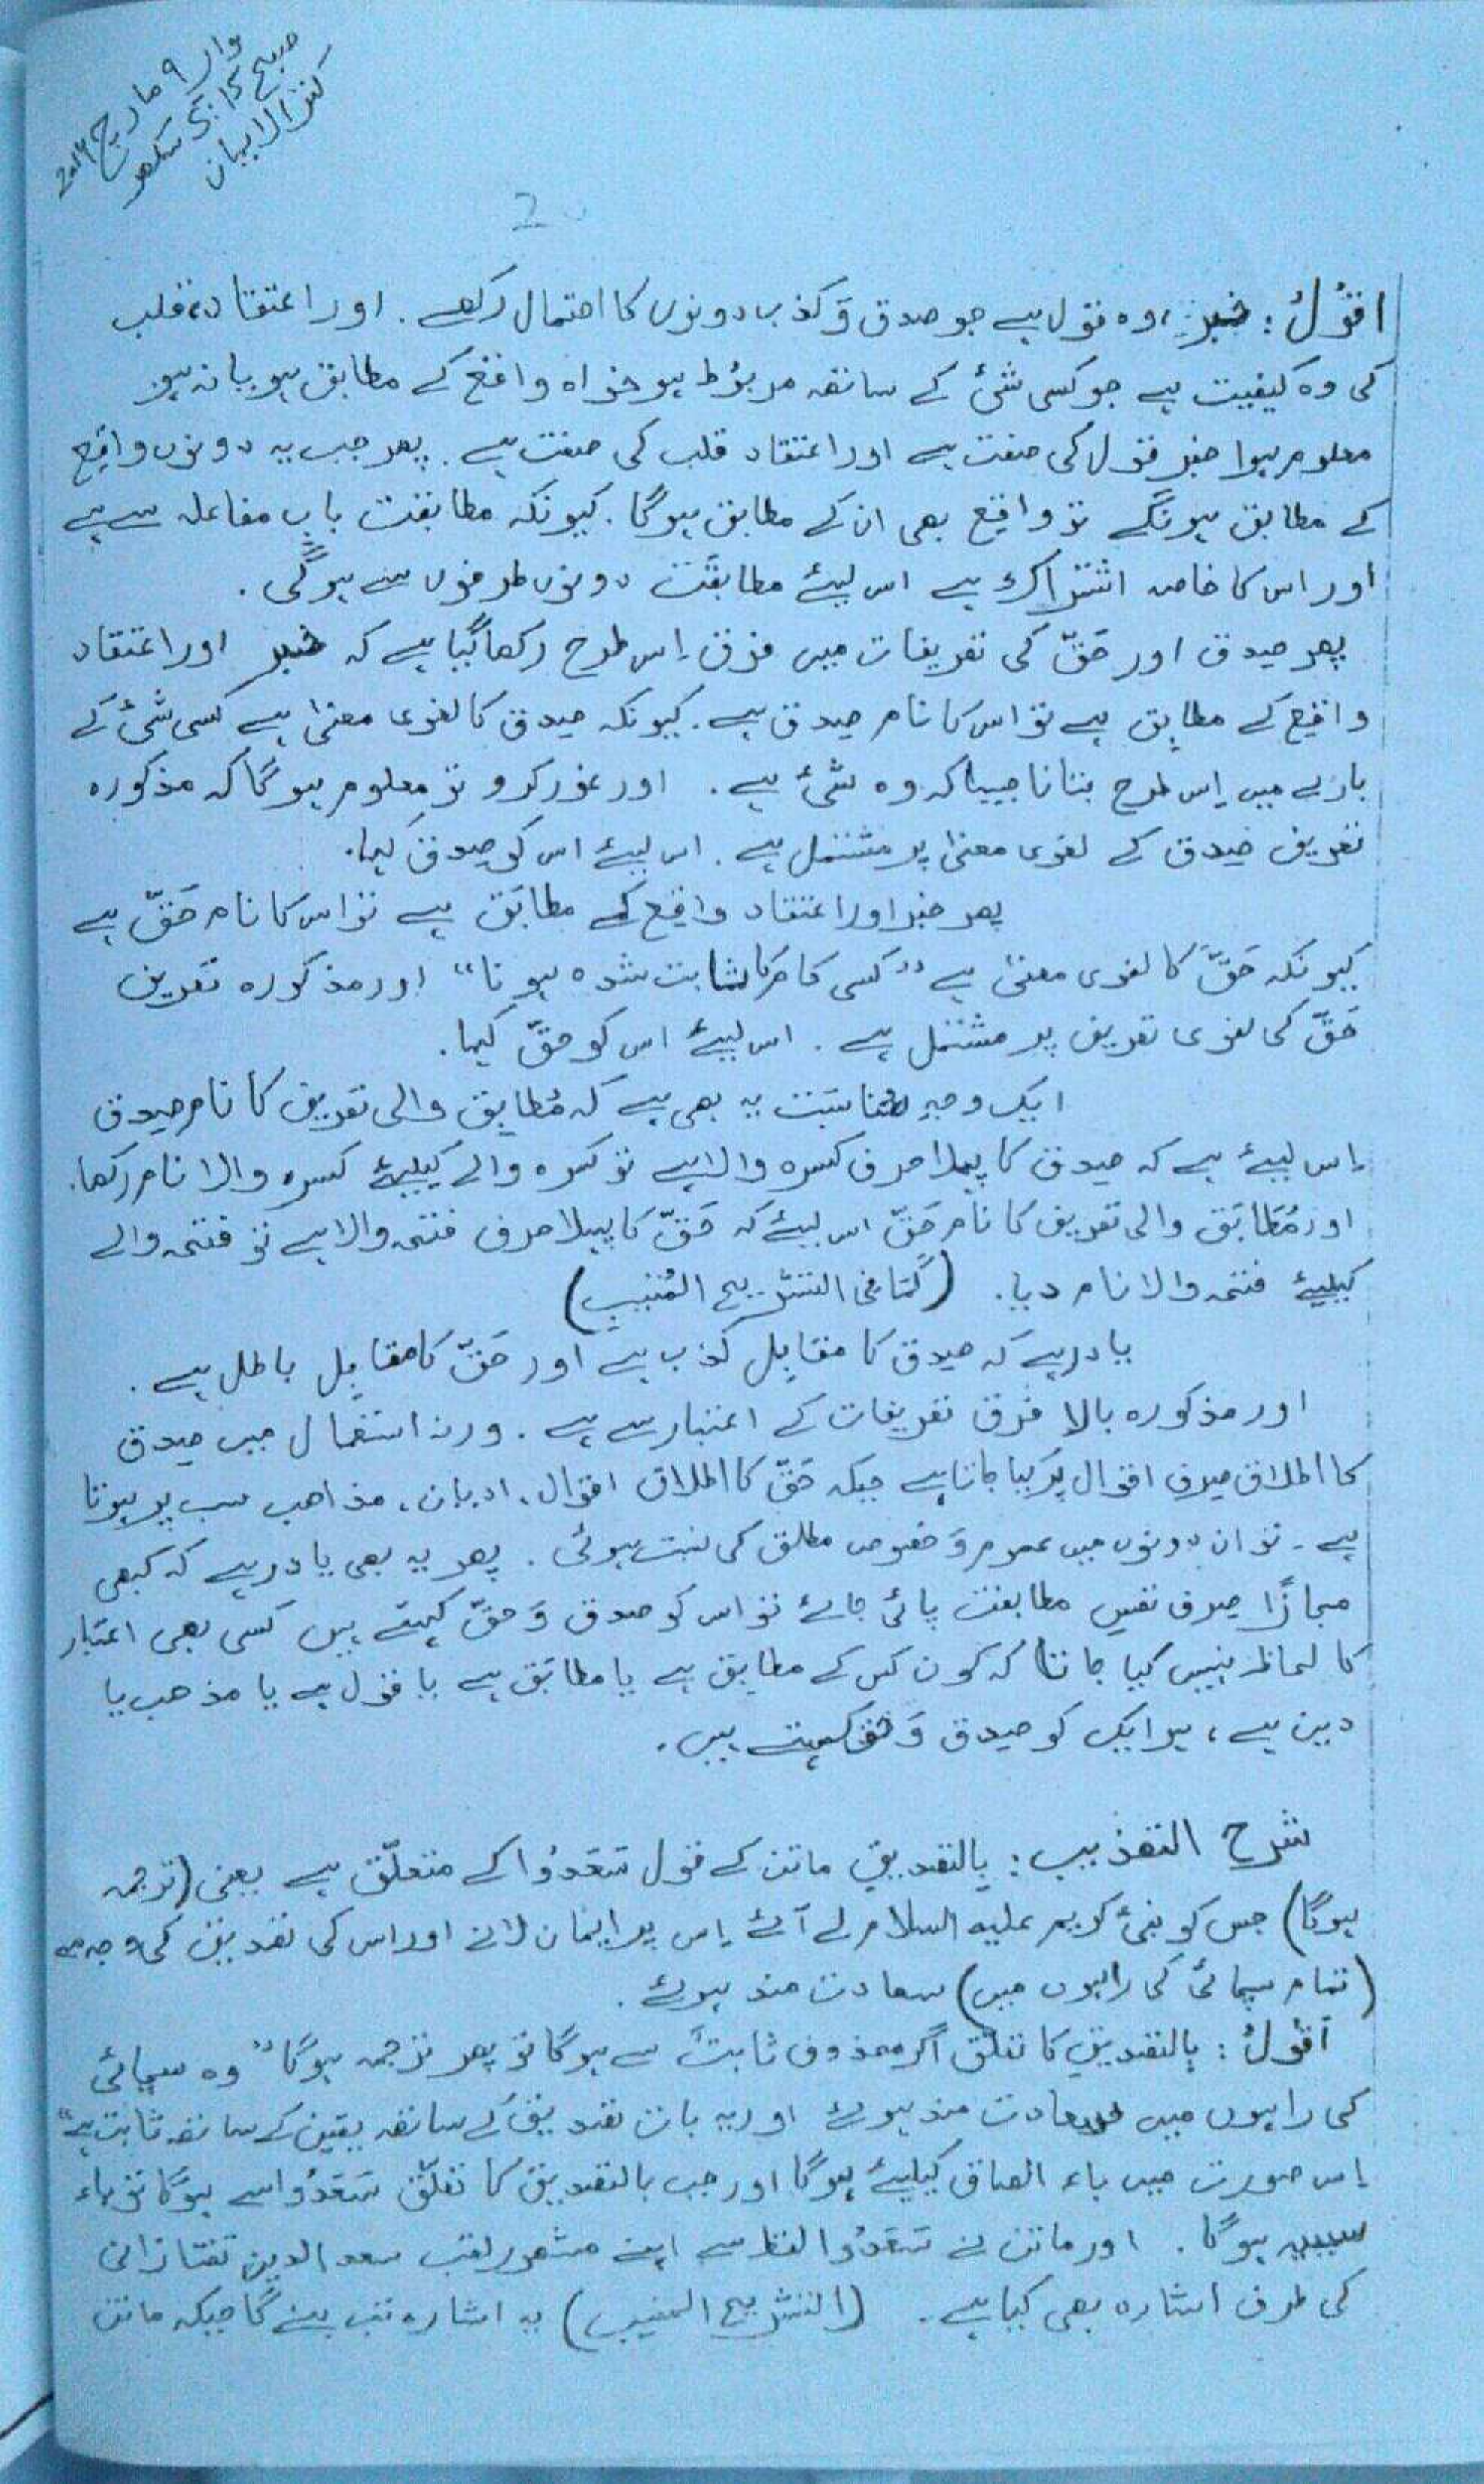 وار ۹ مارچ 2014
صبح 5:15 سکھر
کنز الایمان
2
اقُوْلُ : خبر، وہ قول ہے جو صدق وَ کذب دونوں کا احتمال رکھے . اور اعتقاد، قلب
کی وہ کیفیت ہے جو کسی شئ کے ساتھ مربُوط ہو خواہ واقع کے مطابق ہو یا نہ ہو
معلوم ہوا خبر قول کی صفت ہے اور اعتقاد قلب کی صفت ہے . پھر جب یہ دونوں واقِع
کے مطابق ہونگے تو واقع بھی ان کے مطابق ہوگا . کیونکہ مطابقت بابِ مفاعلہ سے ہے
اور اس کا خاصہ اشتراک ہے اس لیئے مطابقَت دونوں طرفوں سے ہوگی .
پھر صِدق اور حَقّ کی تعریفات میں فرق اِس طرح رکھا گیا ہے کہ خبر اور اعتقاد
واقِع کے مطابِق ہے تو اس کا نام صِدق ہے . کیونکہ صِدق کا لغوی معنیٰ ہے کسی شئ کے
بارے میں اِس طرح بتانا جیسا کہ وہ شئ ہے . اور غور کرو تو معلوم ہوگا کہ مذکورہ
تعریف صِدق کے لغوی معنیٰ پر مشتمل ہے . اس لیئے اس کو صِدق کہا .
پھر خبر اور اعتقاد واقِع کے مطابَق ہے تو اس کا نام حَقّ ہے
کیونکہ حَقّ کا لغوی معنیٰ ہے ”کسی کام کا ثابت شدہ ہونا“ اور مذکورہ تعریف
حَقّ کی لغوی تعریف پر مشتمل ہے . اس لیئے اس کو حقّ کہا .
ایک وجہِ مناسَبت یہ بھی ہے کہ مُطابِق والی تعریف کا نام صِدق
اِس لیئے ہے کہ صِدق کا پہلا حرف کسرہ والا ہے تو کسرہ والے کیلیئے کسرہ والا نام رکھا .
اور مُطَابَق والی تعریف کا نام حَقّ اس لیئے کہ حَقّ کا پہلا حرف فتحہ والا ہے تو فتحہ والے
کیلیئے فتحہ والا نام دیا . (کَمَا فی التشریح المُنِیب)
یاد رہے کہ صِدق کا مقابِل کذب ہے اور حَقّ کا مقابِل باطل ہے .
اور مذکورہ بالا فرق تعریفات کے اعتبار سے ہے . ورنہ استعمال میں صِدق
کا اطلاق صِرف اقوال پر کیا جاتا ہے جبکہ حَقّ کا اطلاق اقوال، ادیان، مذاھب سب پر ہوتا
ہے . تو ان دونوں میں عموم وَ خصوص مطلق کی نسبت ہوئی . پھر یہ بھی یاد رہے کہ کبھی
مجازًا صِرف نفسِ مطابقت پائی جائے تو اس کو صدق وَ حقّ کہتے ہیں کسی بھی اعتبار
کا لحاظ نہیں کیا جاتا کہ کون کس کے مطابِق ہے یا مطابَق ہے یا قول ہے یا مذھب یا
دین ہے ، ہر ایک کو صِدق وَ حق کہتے ہیں .
شرح التھذیب : بِالتصدیقِ ماتن کے قول سَعَدُوا کے متعلّق ہے یعنی (ترجمہ
ہوگا) جس کو نبئ کریم علیہ السلام لے آئے اِس پر ایمان لانے اور اس کی تصدیق کی وجہ سے
(تمام سچائی کی راہوں میں) سعادت مند ہوئے .
اقُوْلُ : بِالتصدیقِ کا تعلّق اگر محذوف ثابتٌ سے ہوگا تو پھر ترجمہ ہوگا ”وہ سچائی
کی راہوں میں سعادت مند ہوئے اور یہ بات تصدیق کے ساتھ یقین کے ساتھ ثابت ہے“
اِس صورت میں باء الصاق کیلیئے ہوگا اور جب بالتصدیق کا تعلّق سَعَدُوا سے ہوگا تو باء
سببیہ ہوگا . اور ماتن نے سَعَدُوا لفظ سے اپنے مشھور لقب سعد الدین تفتازانی
کی طرف اشارہ بھی کیا ہے . (التشریح المنیب) یہ اشارہ تب بنے گا جبکہ ماتن